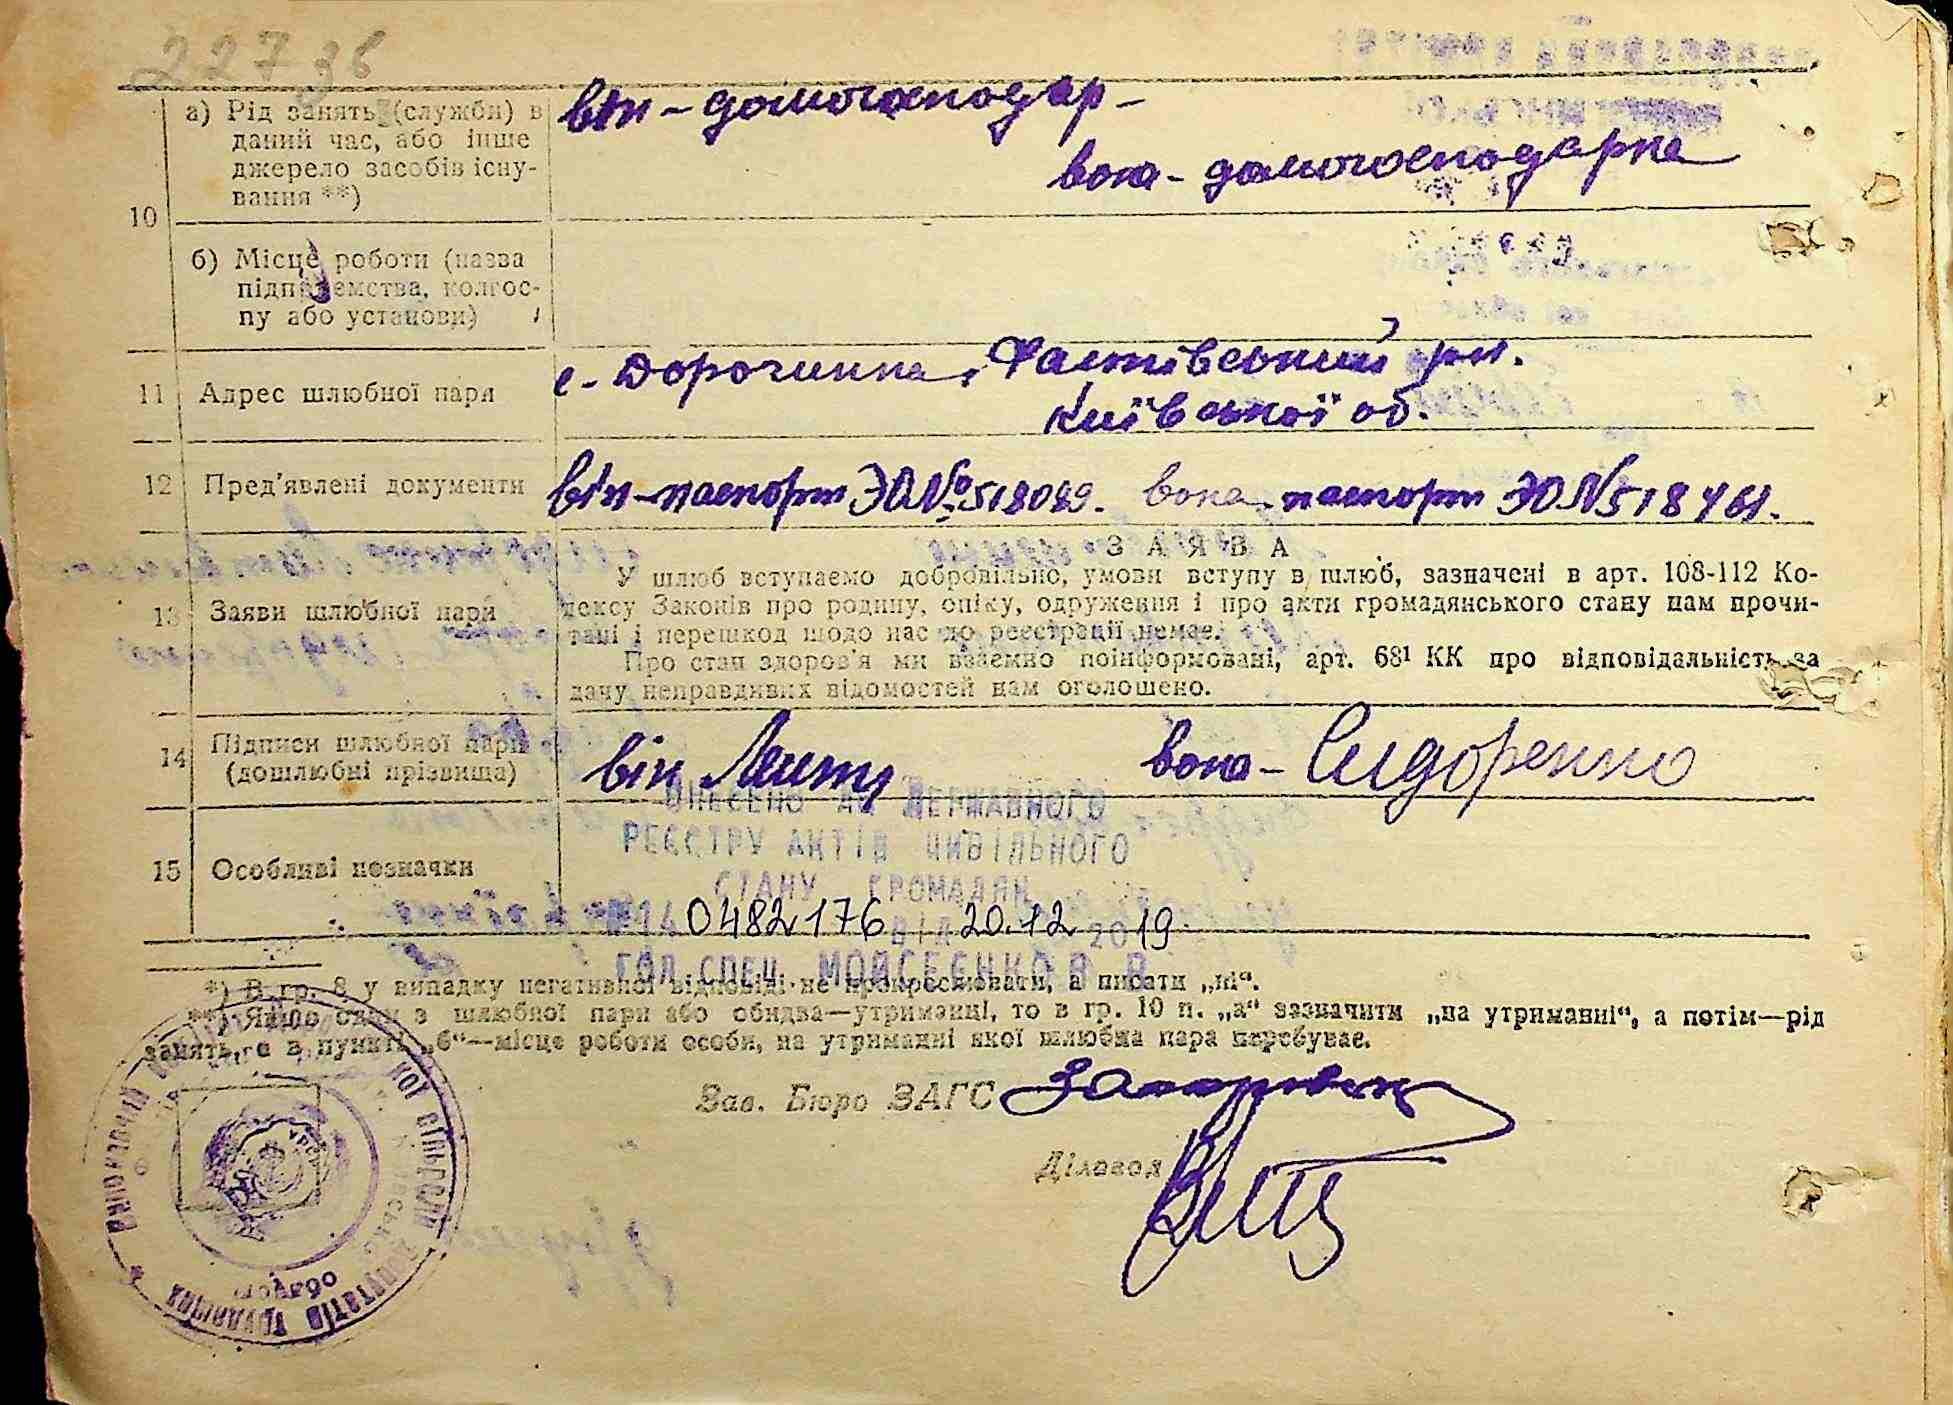 22736
10
а) Рід занять (служби) в
даний час, або інше
джерело засобів існу-
вання **)
він - домогосподар -
вона - домогосподарка
б) Місце роботи (назва
підприємства, колгос-
пу або установи)
11
Адрес шлюбної пари
с. Дорогинка, Фастівський рн.
Київської об.
12
Пред'явлені документи
він - паспорт ЭЮ №518089. вона - паспорт ЭЮ №518461.
13
Заяви шлюбної пари
ЗАЯВА
У шлюб вступаємо добровільно, умови вступу в шлюб, зазначені в арт. 108-112 Ко-
дексу Законів про родину, опіку, одруження і про акти громадянського стану нам прочи-
тані і перешкод щодо нас до реєстрації немає.
Про стан здоров'я ми взаємно поінформовані, арт. 68¹ КК про відповідальність за
дачу неправдивих відомостей нам оголошено.
14
Підписи шлюбної пари
(дошлюбні прізвища)
він
вона - Сидоренко
15
Особливі позначки
ВНЕСЕНО ДО ДЕРЖАВНОГО
РЕЄСТРУ АКТІВ ЦИВІЛЬНОГО
СТАНУ ГРОМАДЯН
0482176 ВІД 20.12 2019.
ГОЛ.СПЕЦ. МОЙСЕЄНКО В В
*) В гр. 8 у випадку негативної відповіді не прокреслювати, а писати „ні“.
**) Якщо один з шлюбної пари або обидва—утриманці, то в гр. 10 п. „а“ зазначити „на утриманні“, а потім—рід
занять, а в пункті „б“—місце роботи особи, на утриманні якої шлюбна пара перебуває.
Зав. Бюро ЗАГС
Діловод